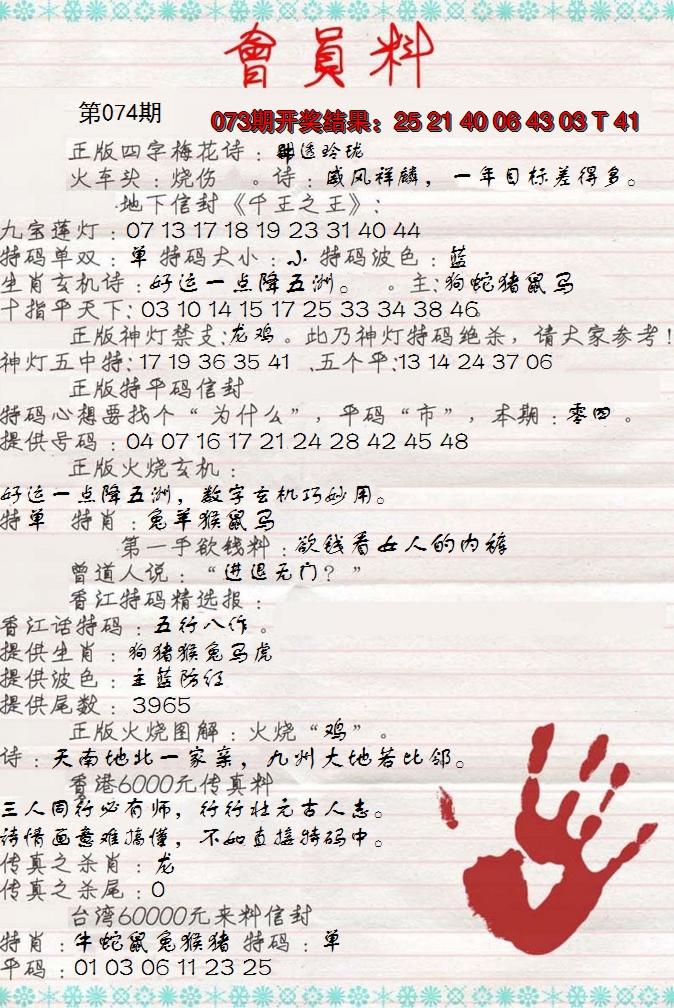 會員料
第074期
073期开奖结果：25 21 40 06 43 03 T 41
正版四字梅花诗：剔透玲珑
火车头：烧伤 。诗：威风祥麟，一年目标差得多。
地下信封《千王之王》：
九宝莲灯：07 13 17 18 19 23 31 40 44
特码单双：单 特码大小：小 特码波色：蓝
生肖玄机诗：好运一点降五洲。 。主：狗蛇猪鼠马
十指平天下：03 10 14 15 17 25 33 34 38 46
正版神灯禁支：龙鸡。此乃神灯特码绝杀，请大家参考！
神灯五中特：17 19 36 35 41 .五个平：13 14 24 37 06
正版特平码信封
特码心想要找个“为什么”，平码“市”，本期：零四 。
提供号码：04 07 16 17 21 24 28 42 45 48
正版火烧玄机：
好运一点降五洲，数字玄机巧妙用。
特单 特肖：兔羊猴鼠马
第一手欲钱料：欲钱看女人的内裤
曾道人说：“进退无门？”
香江特码精选报：
香江话特码：五行八作。
提供生肖：狗猪猴兔马虎
提供波色：主蓝防红
提供尾数：3965
正版火烧图解：火烧“鸡”。
诗：天南地北一家亲，九州大地若比邻。
香港6000元传真料
三人同行必有师，行行壮元古人志。
诗情画意难搞懂，不如直接特码中。
传真之杀肖：龙
传真之杀尾：0
台湾60000元来料信封
特肖：牛蛇鼠兔猴猪 特码：单
平码：01 03 06 11 23 25